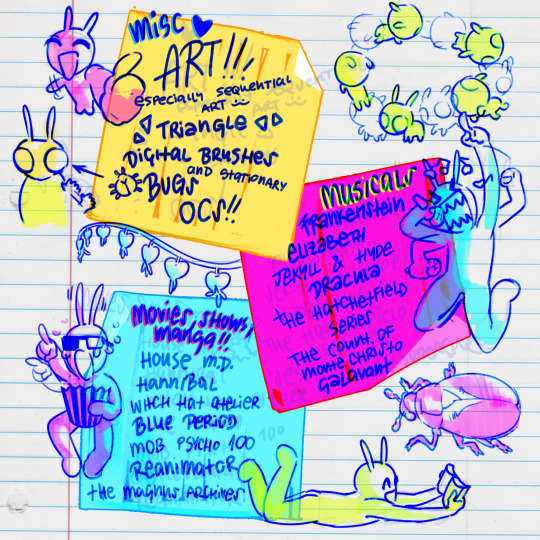 misc
ART!!!
especially sequential
ART
TRIANGLE
DIGITAL BRUSHES
AND STATIONARY
BUGS
OCS!!
MUSICALS
FRANKENSTEIN
ELIZABETH
JEKYLL & HYDE
DRACULA
THE HATCHETFIELD
SERIES
THE COUNT OF
MONTE CHRISTO
GALAVANT
MOVIES, SHOWS,
MANGA!!
HOUSE M.D.
HANNIBAL
WITCH HAT ATELIER
BLUE PERIOD
MOB PSYCHO 100
REANIMATOR
THE MAGNUS ARCHIVES